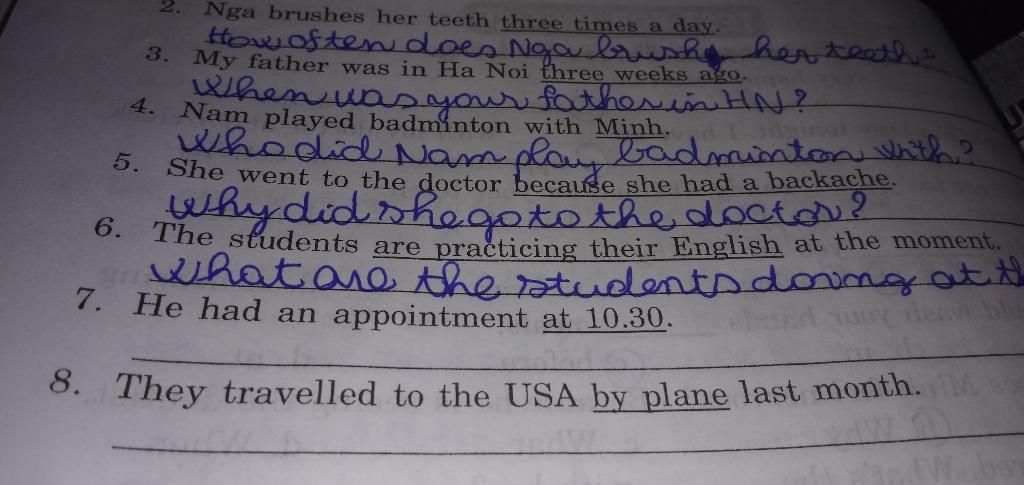 2. Nga brushes her teeth three times a day.
How often does Nga brush her teeth?
3. My father was in Ha Noi three weeks ago.
When was your father in HN?
4. Nam played badminton with Minh.
Who did Nam play badminton with?
5. She went to the doctor because she had a backache.
Why did she go to the doctor?
6. The students are practicing their English at the moment.
What are the students doing at th
7. He had an appointment at 10.30.
8. They travelled to the USA by plane last month.